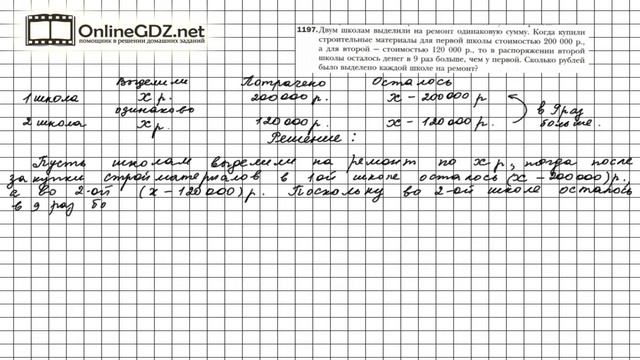 OnlineGDZ.net
помощник в решении домашних заданий
1197. Двум школам выделили на ремонт одинаковую сумму. Когда купили
строительные материалы для первой школы стоимостью 200 000 р.,
а для второй — стоимостью 120 000 р., то в распоряжении второй
школы осталось денег в 9 раз больше, чем у первой. Сколько рублей
было выделено каждой школе на ремонт?
Выделили Потрачено Осталось
1 школа х р. 200 000 р. х - 200 000 р
одинаково
в 9 раз
2 школа х р. 120 000 р. х - 120 000 р.
больше.
Решение:
Пусть школам выделили на ремонт по х р, тогда после
закупки стройматериалов в 1ой школе осталось (х - 200 000) р.
а во 2-ой (х - 120 000) р. Поскольку во 2-ой школе осталось
в 9 раз бо